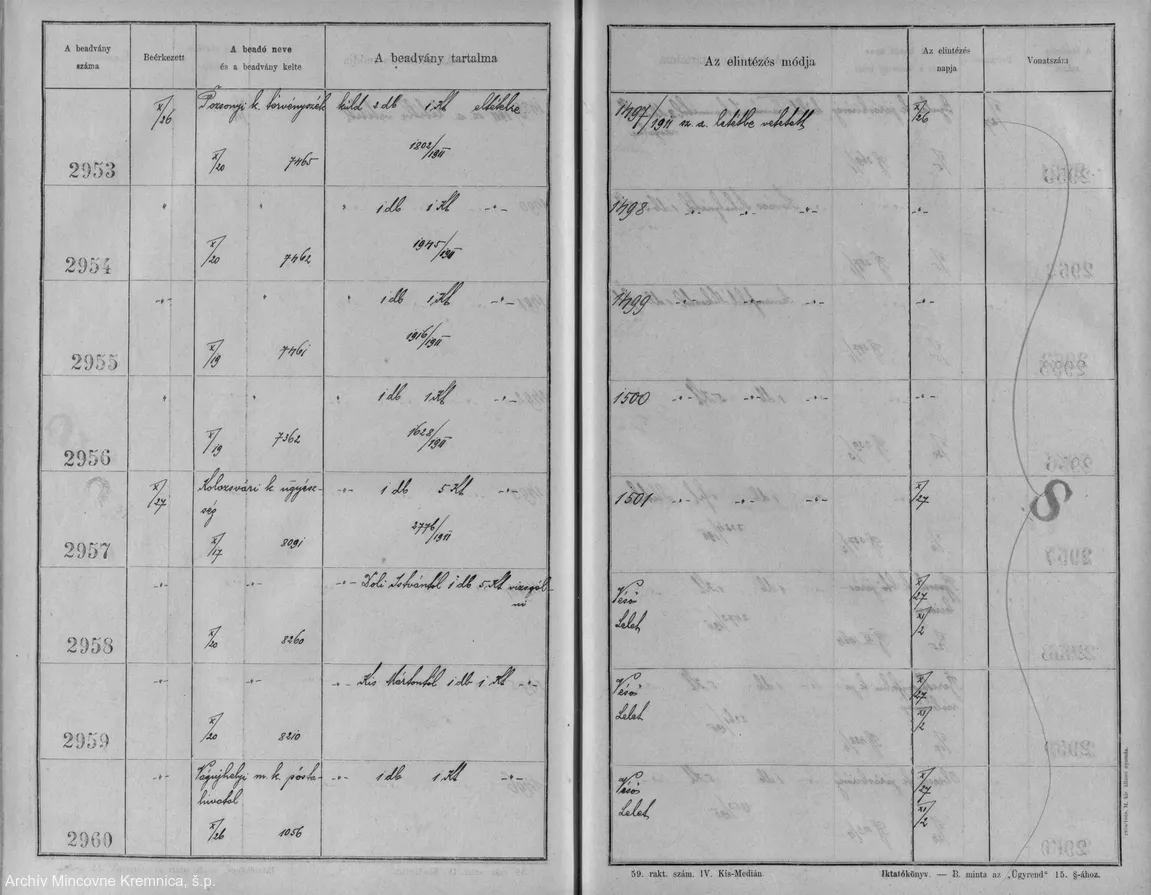 A beadvány száma
Beérkezett
A beadó neve és a beadvány kelte
A beadvány tartalma
Az elintézés módja
Az elintézés napja
Vonatszám
X/26 Pozsonyi k. törvényszék küld 2 db 1 Kt eltételre 1497/1911 sz. a. letétbe vétetett X/26
2953 X/20 7465 1802/1911
" " " 1 db 1 Kt -"- 1498 -"- -"- -"- -"-
2954 X/20 7462 1945/1911
-"- " " 1 db 1 Kt -"- 1499 -"- -"- -"- -"-
2955 X/19 7461 1916/1911
" " " 1 db 1 Kt -"- 1500 -"- -"- -"- -"-
2956 X/19 7362 1628/1911
X/27 Kolozsvári k. ügyész- -"- 1 db 5 Kt -"- 1501 -"- -"- -"- X/27
ség
2957 X/17 8091 2776/1911
8
-"- -"- -"- Istvántól 1 db 5 Kt vizsgál- Véső X/27
ni Lelet XI/2
2958 X/20 8260
-"- -"- -"- Kis Mártontól 1 db 1 Kt -"- Véső X/27
Lelet XI/2
2959 X/20 8210
-"- Vágujhelyi m. k. posta- -"- 1 db 1 Kt -"- Véső X/27
hivatal Lelet XI/2
2960 X/26 1056
59. rakt. szám. IV. Kis-Medián.
Iktatókönyv. — B. minta az „Ügyrend" 15. §-ához.
Archív Mincovne Kremnica, š.p.